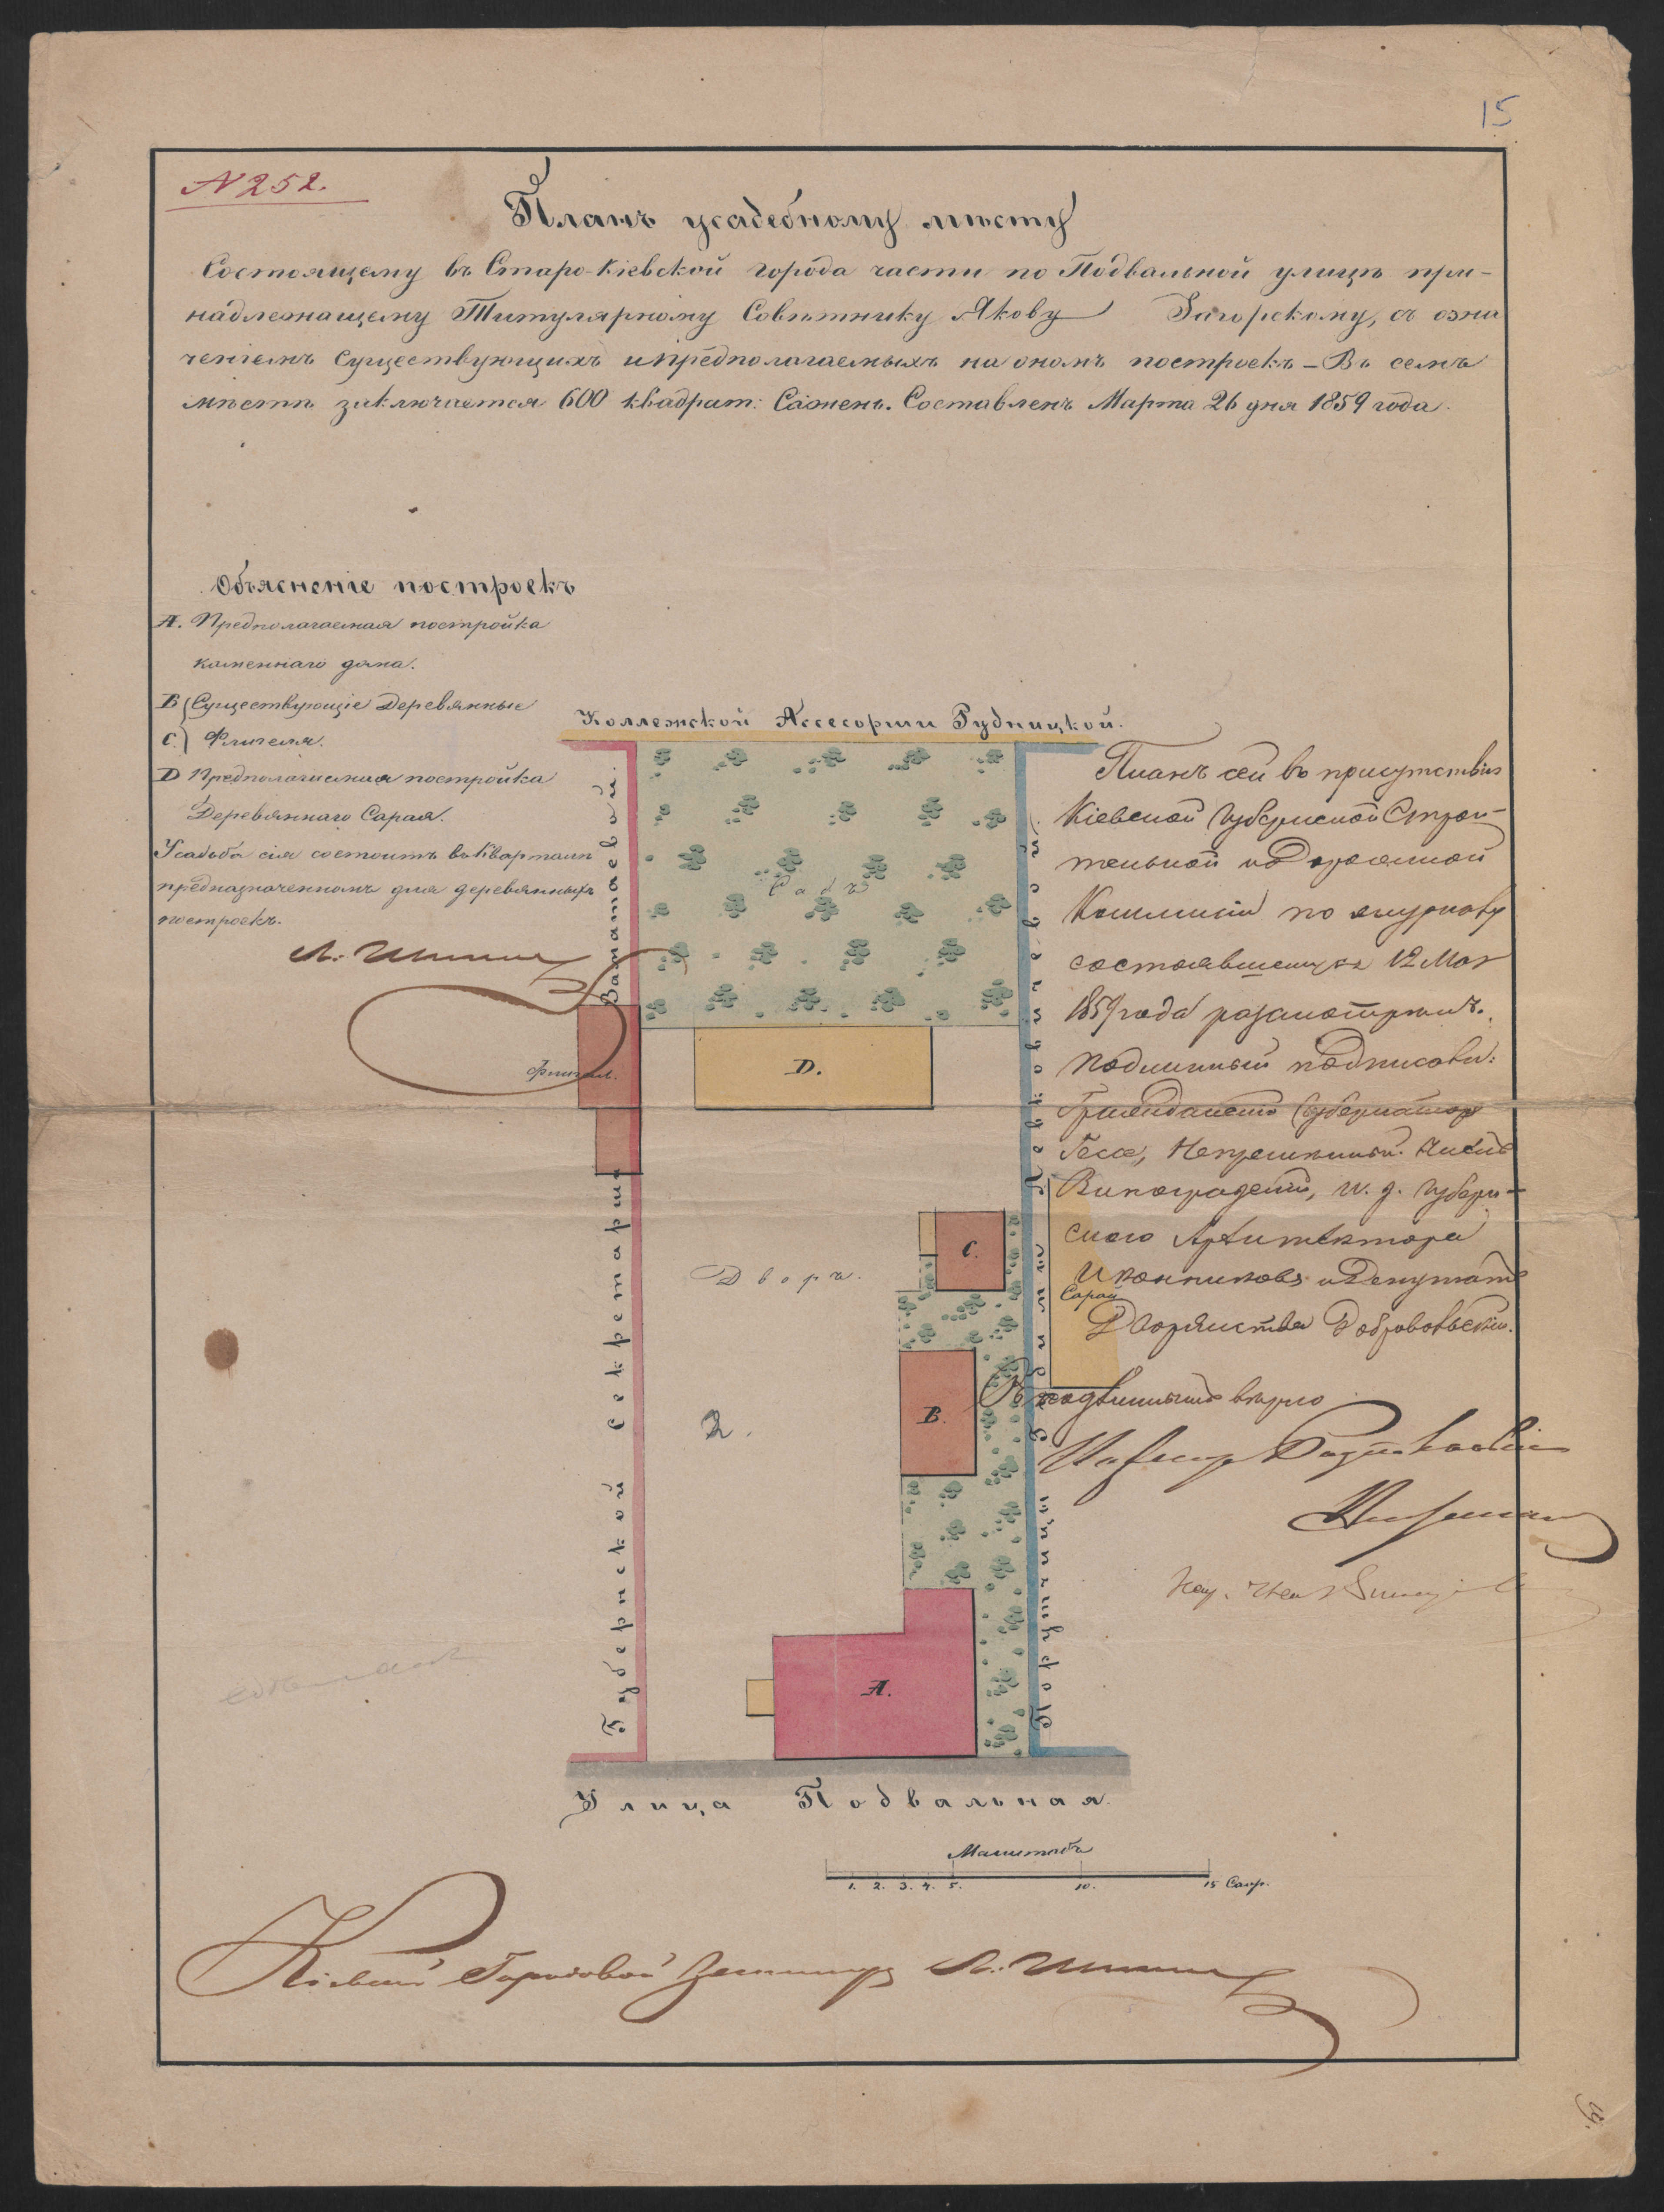 15
N 252.
Планъ усадебному мѣсту
Состоящему въ Старо-Кіевской города части по Подвальной улицѣ при-
надлежащему Титулярному Совѣтнику Якову Загорскому, съ озна
ченіемъ существующихъ и предполагаемыхъ на ономъ построекъ – Въ семъ
мѣстѣ заключается 600 квадрат: Сажень. Составленъ Марта 26 дня 1859 года.
Объясненіе построекъ
А. Предполагаемая постройка
каменнаго дома.
В (Существующіе Деревянные
С.) Флигеля.
D Предполагаемая постройка
Деревяннаго Сарая.
Усадьба сія состоитъ въ Кварталѣ
предназначенномъ для деревянныхъ
построекъ.
Коллежской Ассесорши Рудницкой.
Губернской Секретарши
Садъ
Флигел.
D.
Дворъ.
С.
В.
2.
А.
Сарай
Планъ сей въ присутствіи
Кіевской Губернской Строи-
тельной и Дорожной
Коммисіи по журналу
состоявшемуся 12 Мая
1859 года разсмотренъ.
Подлинный подписали:
Гражданскій Губернаторъ
Гессе, Непремѣнный Членъ
и. д. Губерн-
скаго Архитектора
Иконниковъ и Депутатъ
Дворянства Добровольскій.
Съ подлиннымъ вѣрно
Улица Подвальная.
Масштабъ
1. 2. 3. 4. 5. 10. 15 Саж.
Кіевскій Городовой Землемѣръ